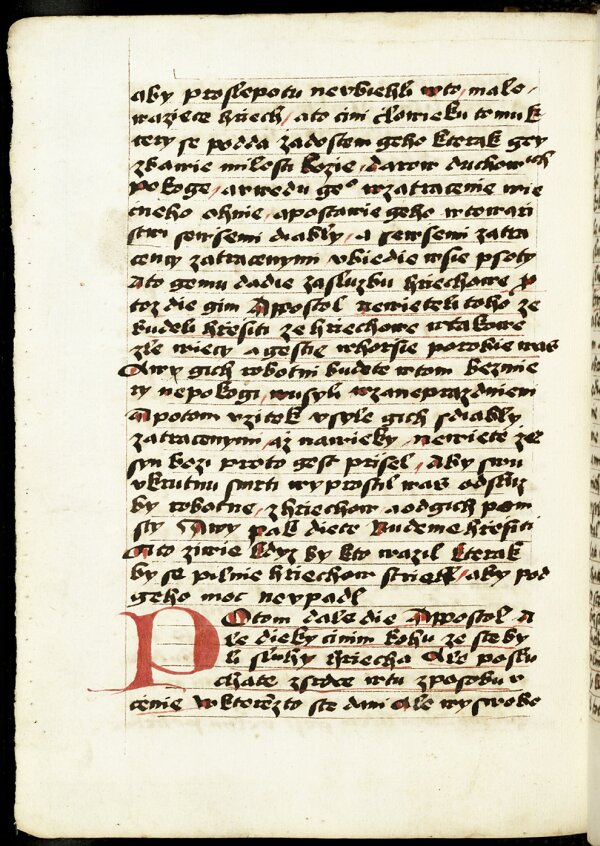 aby proslepotu nevbiehli wto malo
wazece hriech / ato cini clowieku tomu k
tery se podda zadostem geho kterak gey
zbawie milosti bozie / darow duchownich
pokoge / awwedu geo wzatracenie wie
cneho ohnie / apostawie geho wtowari
stwi sewsemi diably / a sewsemi zatra
ceny zatracenymi vbiedie wsie psoty
Ato gemu dadie zasluzbu hriechowe p
toz die gim Appostol newieteli toho ze
budeli hresiti ze hriechowe wtakowe
zle wiecy agestie whorsie porobie was
Awy gich robotni budete wtom bezmie
ry nepokogi wusyli wzaneprazdnieni
A potom vzitek vsyle gich sdiably
zatracenymi az nawieky / newiete ze
syn bozi proto gest prisel / aby swu
vkrutnu smrti wyprostil was odsluz
by robotne / zhriechow aodgich pom
sty Awy pak diete Budeme hresiti
Ato zwie kdyz by kto wazil kterak
by se pilnie hriechow striehl / aby pod
geho moc nevpadl
Potom dale die Appostol A
le dieky cinim bohu ze ste by
li sluhy hriecha Ale poslu
chate zsrdce wtu zposobu v
cenie wkterezto ste dani Ale wyswobo